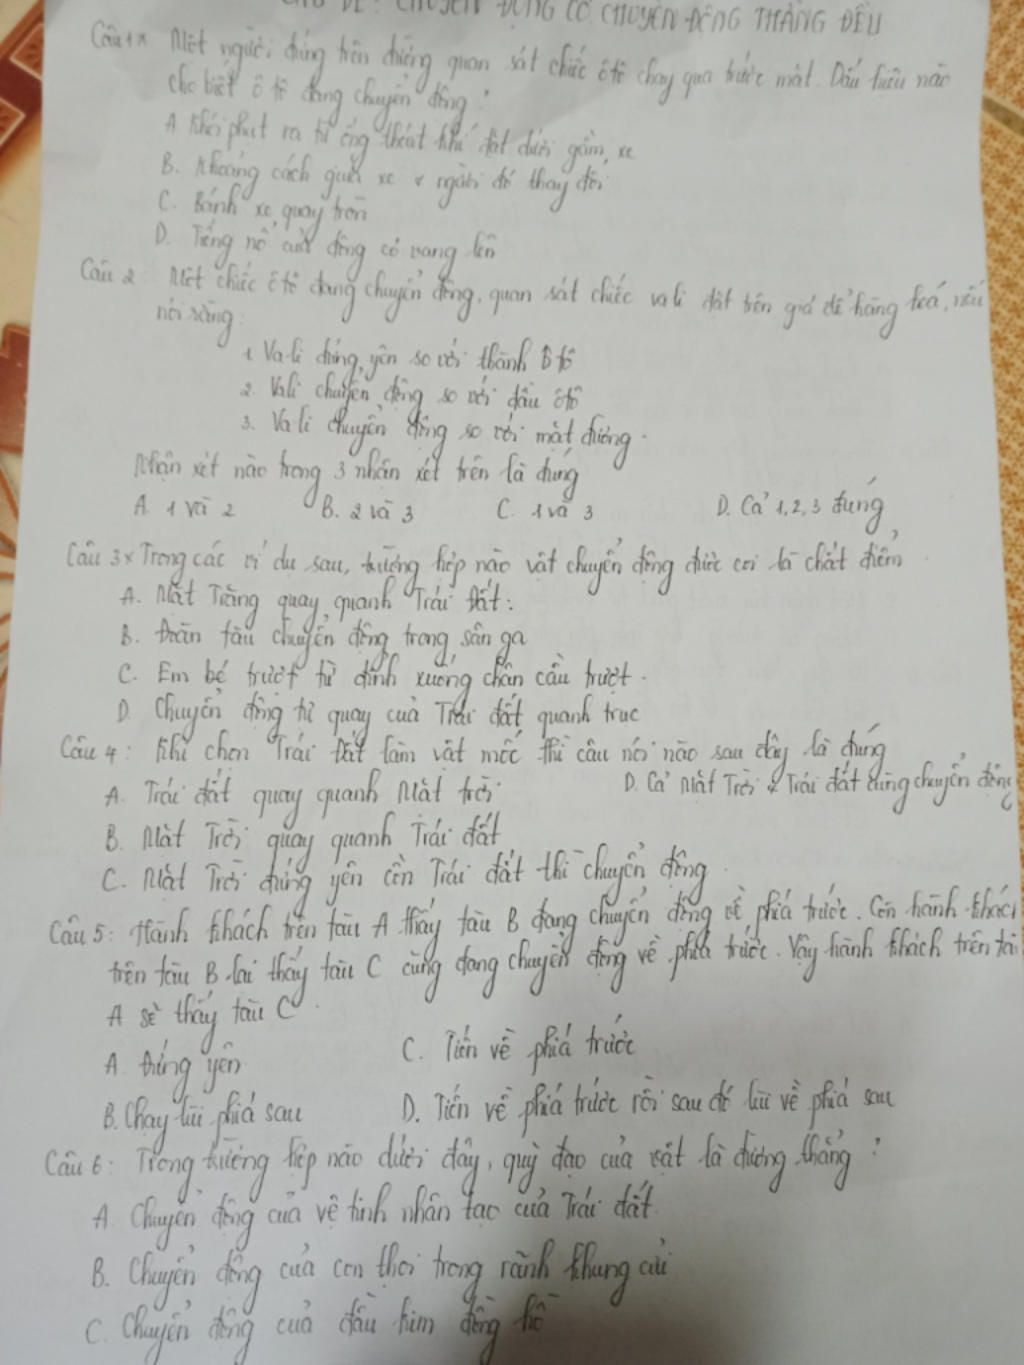 CHỦ ĐỀ: CHUYỂN ĐỘNG CƠ. CHUYỂN ĐỘNG THẲNG ĐỀU
Câu 1* Một người đứng trên đường quan sát chiếc ô tô chạy qua trước mặt. Dấu hiệu nào
cho biết ô tô đang chuyển động?
A Khói phụt ra từ ống thoát khí đặt dưới gầm xe
B. Khoảng cách giữa xe & người đó thay đổi
C. Bánh xe quay tròn
D. Tiếng nổ của động cơ vang lên
Câu 2: Một chiếc ô tô đang chuyển động, quan sát chiếc va li đặt trên giá để hàng hoá, nếu
nói rằng:
1 Va li đứng yên so với thành ô tô
2. Vali chuyển động so với đầu ôtô
3. Va li chuyển động so với mặt đường.
Nhận xét nào trong 3 nhận xét trên là đúng
A. 1 và 2 B. 2 và 3 C. 1 và 3 D. Cả 1, 2, 3 đúng
Câu 3* Trong các ví dụ sau, trường hợp nào vật chuyển động được coi là chất điểm
A. Mặt Trăng quay quanh Trái Đất.
B. Đoàn tàu chuyển động trong sân ga
C. Em bé trượt từ đỉnh xuống chân cầu trượt.
D. Chuyển động tự quay của Trái đất quanh trục
Câu 4: Khi chọn Trái Đất làm vật mốc thì câu nói nào sau đây là đúng
A. Trái đất quay quanh Mặt trời D. Cả Mặt Trời & Trái đất cùng chuyển động
B. Mặt Trời quay quanh Trái đất
C. Mặt Trời đứng yên còn Trái đất thì chuyển động
Câu 5: Hành khách trên tàu A thấy tàu B đang chuyển động về phía trước. Còn hành khách
trên tàu B lại thấy tàu C cũng đang chuyển động về phía trước. Vậy hành khách trên tàu
A sẽ thấy tàu C.
A. Đứng yên C. Tiến về phía trước
B. Chạy lùi phía sau D. Tiến về phía trước rồi sau đó lùi về phía sau
Câu 6: Trong trường hợp nào dưới đây, quỹ đạo của vật là đường thẳng?
A. Chuyển động của vệ tinh nhân tạo của Trái đất
B. Chuyển động của con thoi trong rãnh khung cửi
C. Chuyển động của đầu kim đồng hồ